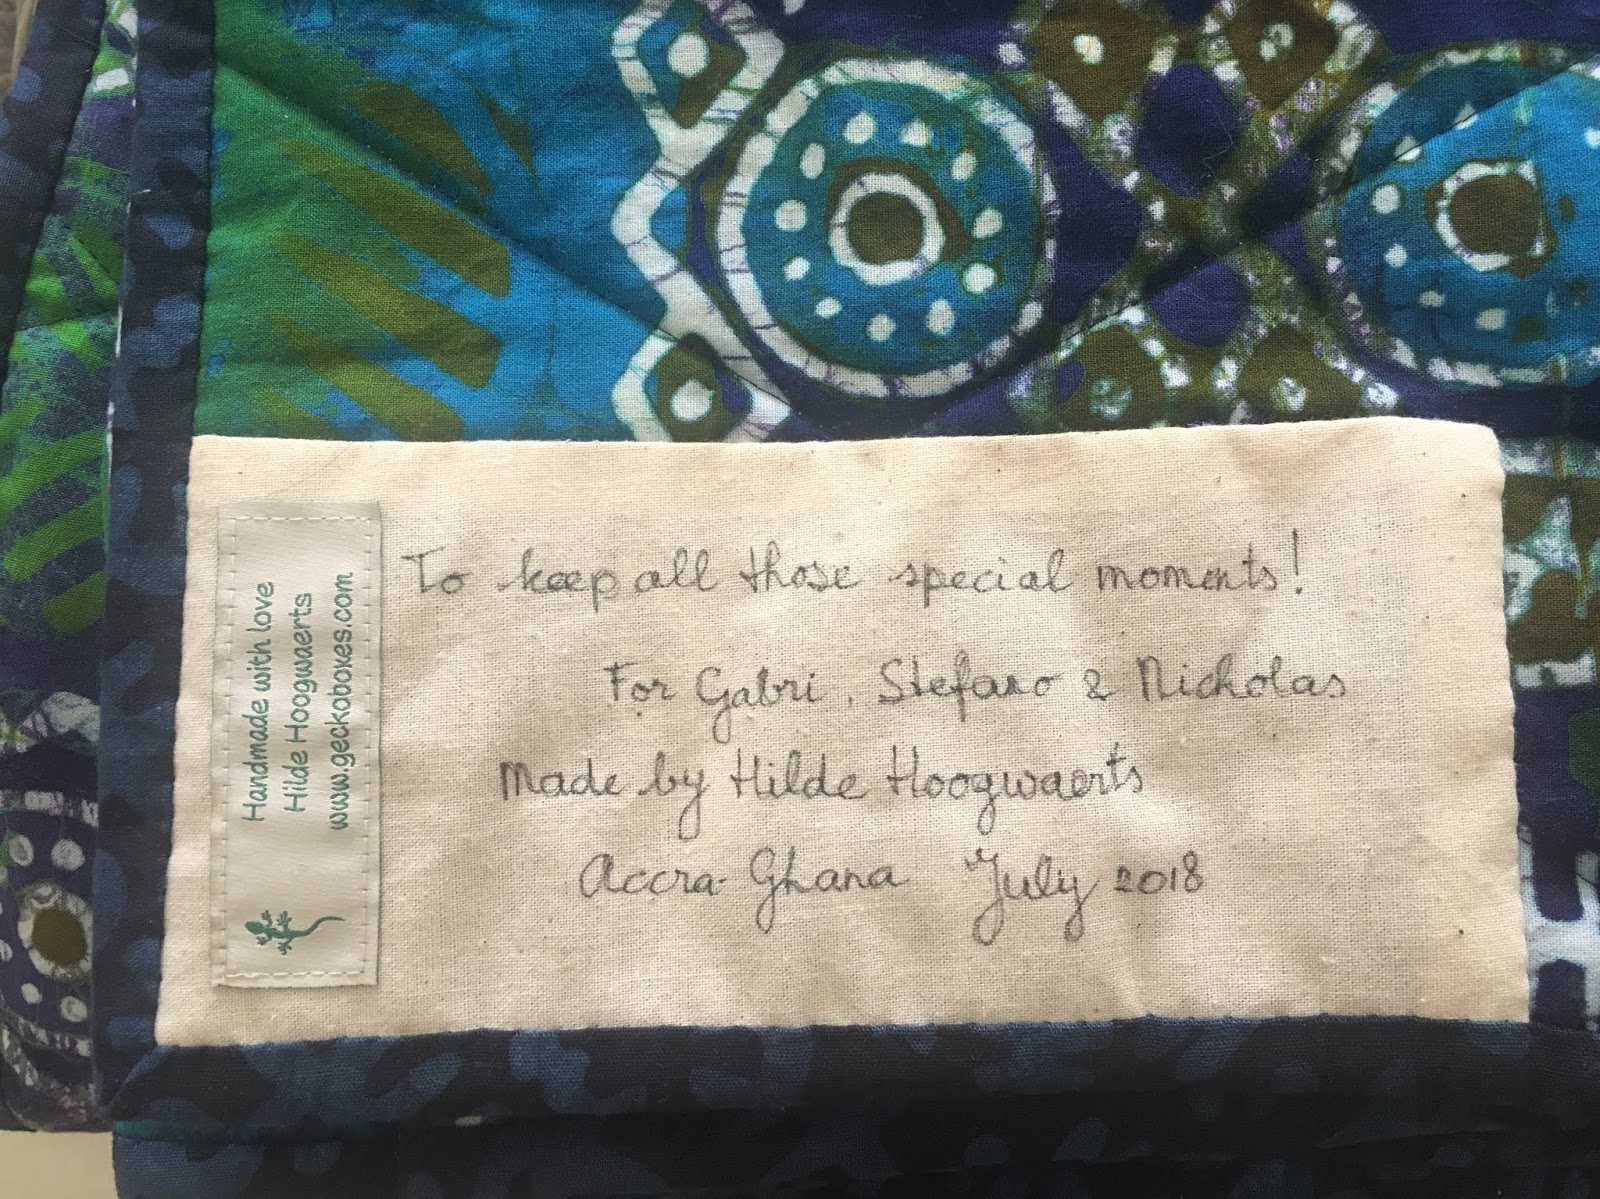 To keep all those special moments!
For Gabri, Stefano & Nicholas
Made by Hilde Hoogwaerts
Accra Ghana July 2018
Handmade with love
Hilde Hoogwaerts
www.geckoboxes.com